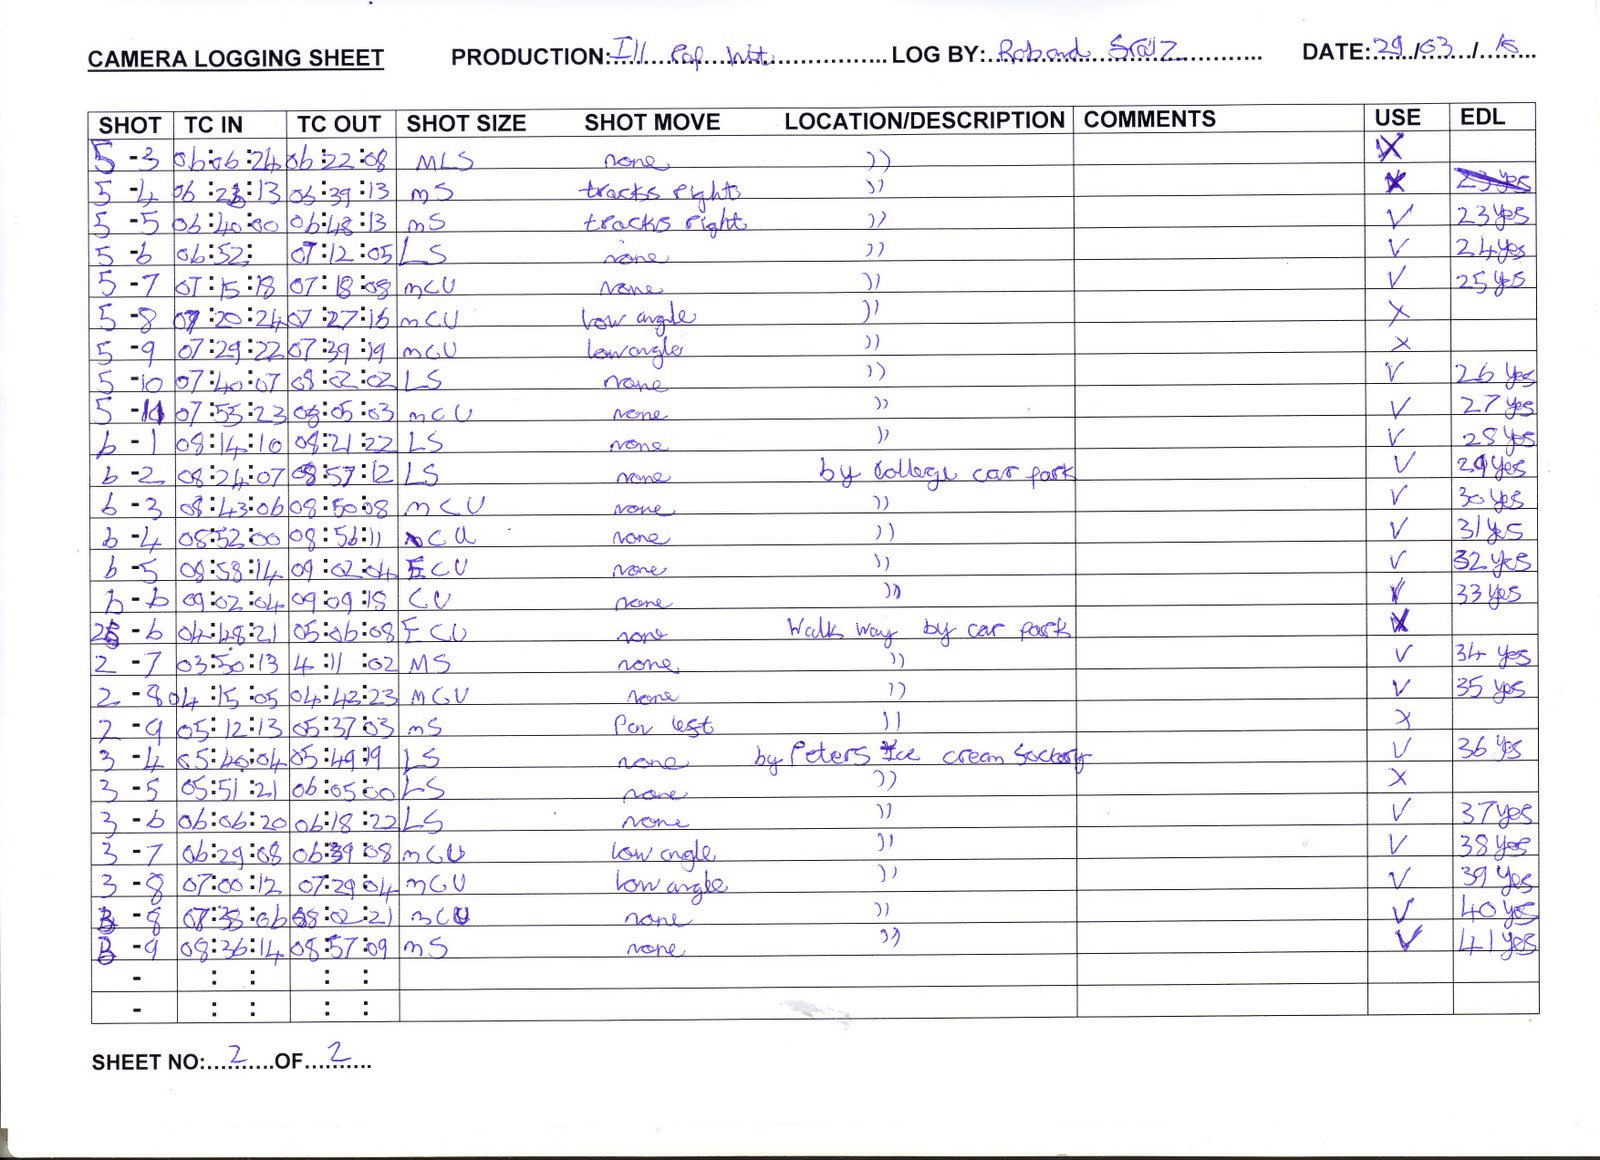 CAMERA LOGGING SHEET PRODUCTION: Ill LOG BY: DATE: 29/03/
SHOT TC IN TC OUT SHOT SIZE SHOT MOVE LOCATION/DESCRIPTION COMMENTS USE EDL
5 -3 06:06:24 06:22:08 MLS none )) X
5 -4 06:23:13 06:39:13 mS tracks right )) X 23 yes
5 -5 06:40:00 06:48:13 mS tracks right )) V 23 yes
5 -6 06:52: 07:12:05 LS none )) V 24 yes
5 -7 07:15:18 07:18:08 mCU none )) V 25 yes
5 -8 07:20:24 07:27:16 mCU low angle )) X
5 -9 07:29:22 07:39:19 mCU low angle )) X
5 -10 07:40:07 08:02:02 LS none )) V 26 yes
5 -11 07:55:23 08:05:03 mCU none )) V 27 yes
6 -1 08:14:10 08:21:22 LS none )) V 28 yes
6 -2 08:24:07 08:57:12 LS none by College car park V 29 yes
6 -3 08:43:06 08:50:08 mCU none )) V 30 yes
6 -4 08:52:00 08:56:11 CU none )) V 31 yes
6 -5 08:58:14 09:02:04 ECU none )) V 32 yes
6 -6 09:02:04 09:09:18 CU none )) V 33 yes
2 -6 04:48:21 05:06:08 ECU none Walk way by car park X
2 -7 03:50:13 4:11:02 MS none )) V 34 yes
2 -8 04:15:05 04:42:23 MCU none )) V 35 yes
2 -9 05:12:13 05:37:03 mS Pan left )) X
3 -4 05:40:04 05:49:19 LS none by Peters Ice cream factory V 36 yes
3 -5 05:51:21 06:05:00 LS none )) X
3 -6 06:06:20 06:18:22 LS none )) V 37 yes
3 -7 06:29:08 06:39:08 mCU low angle )) V 38 yes
3 -8 07:00:12 07:29:04 mCU low angle )) V 39 yes
3 -8 07:38:06 08:02:21 mCU none )) V 40 yes
3 -9 08:36:14 08:57:09 mS none )) V 41 yes
- : : : :
- : : : :
SHEET NO: 2 OF 2